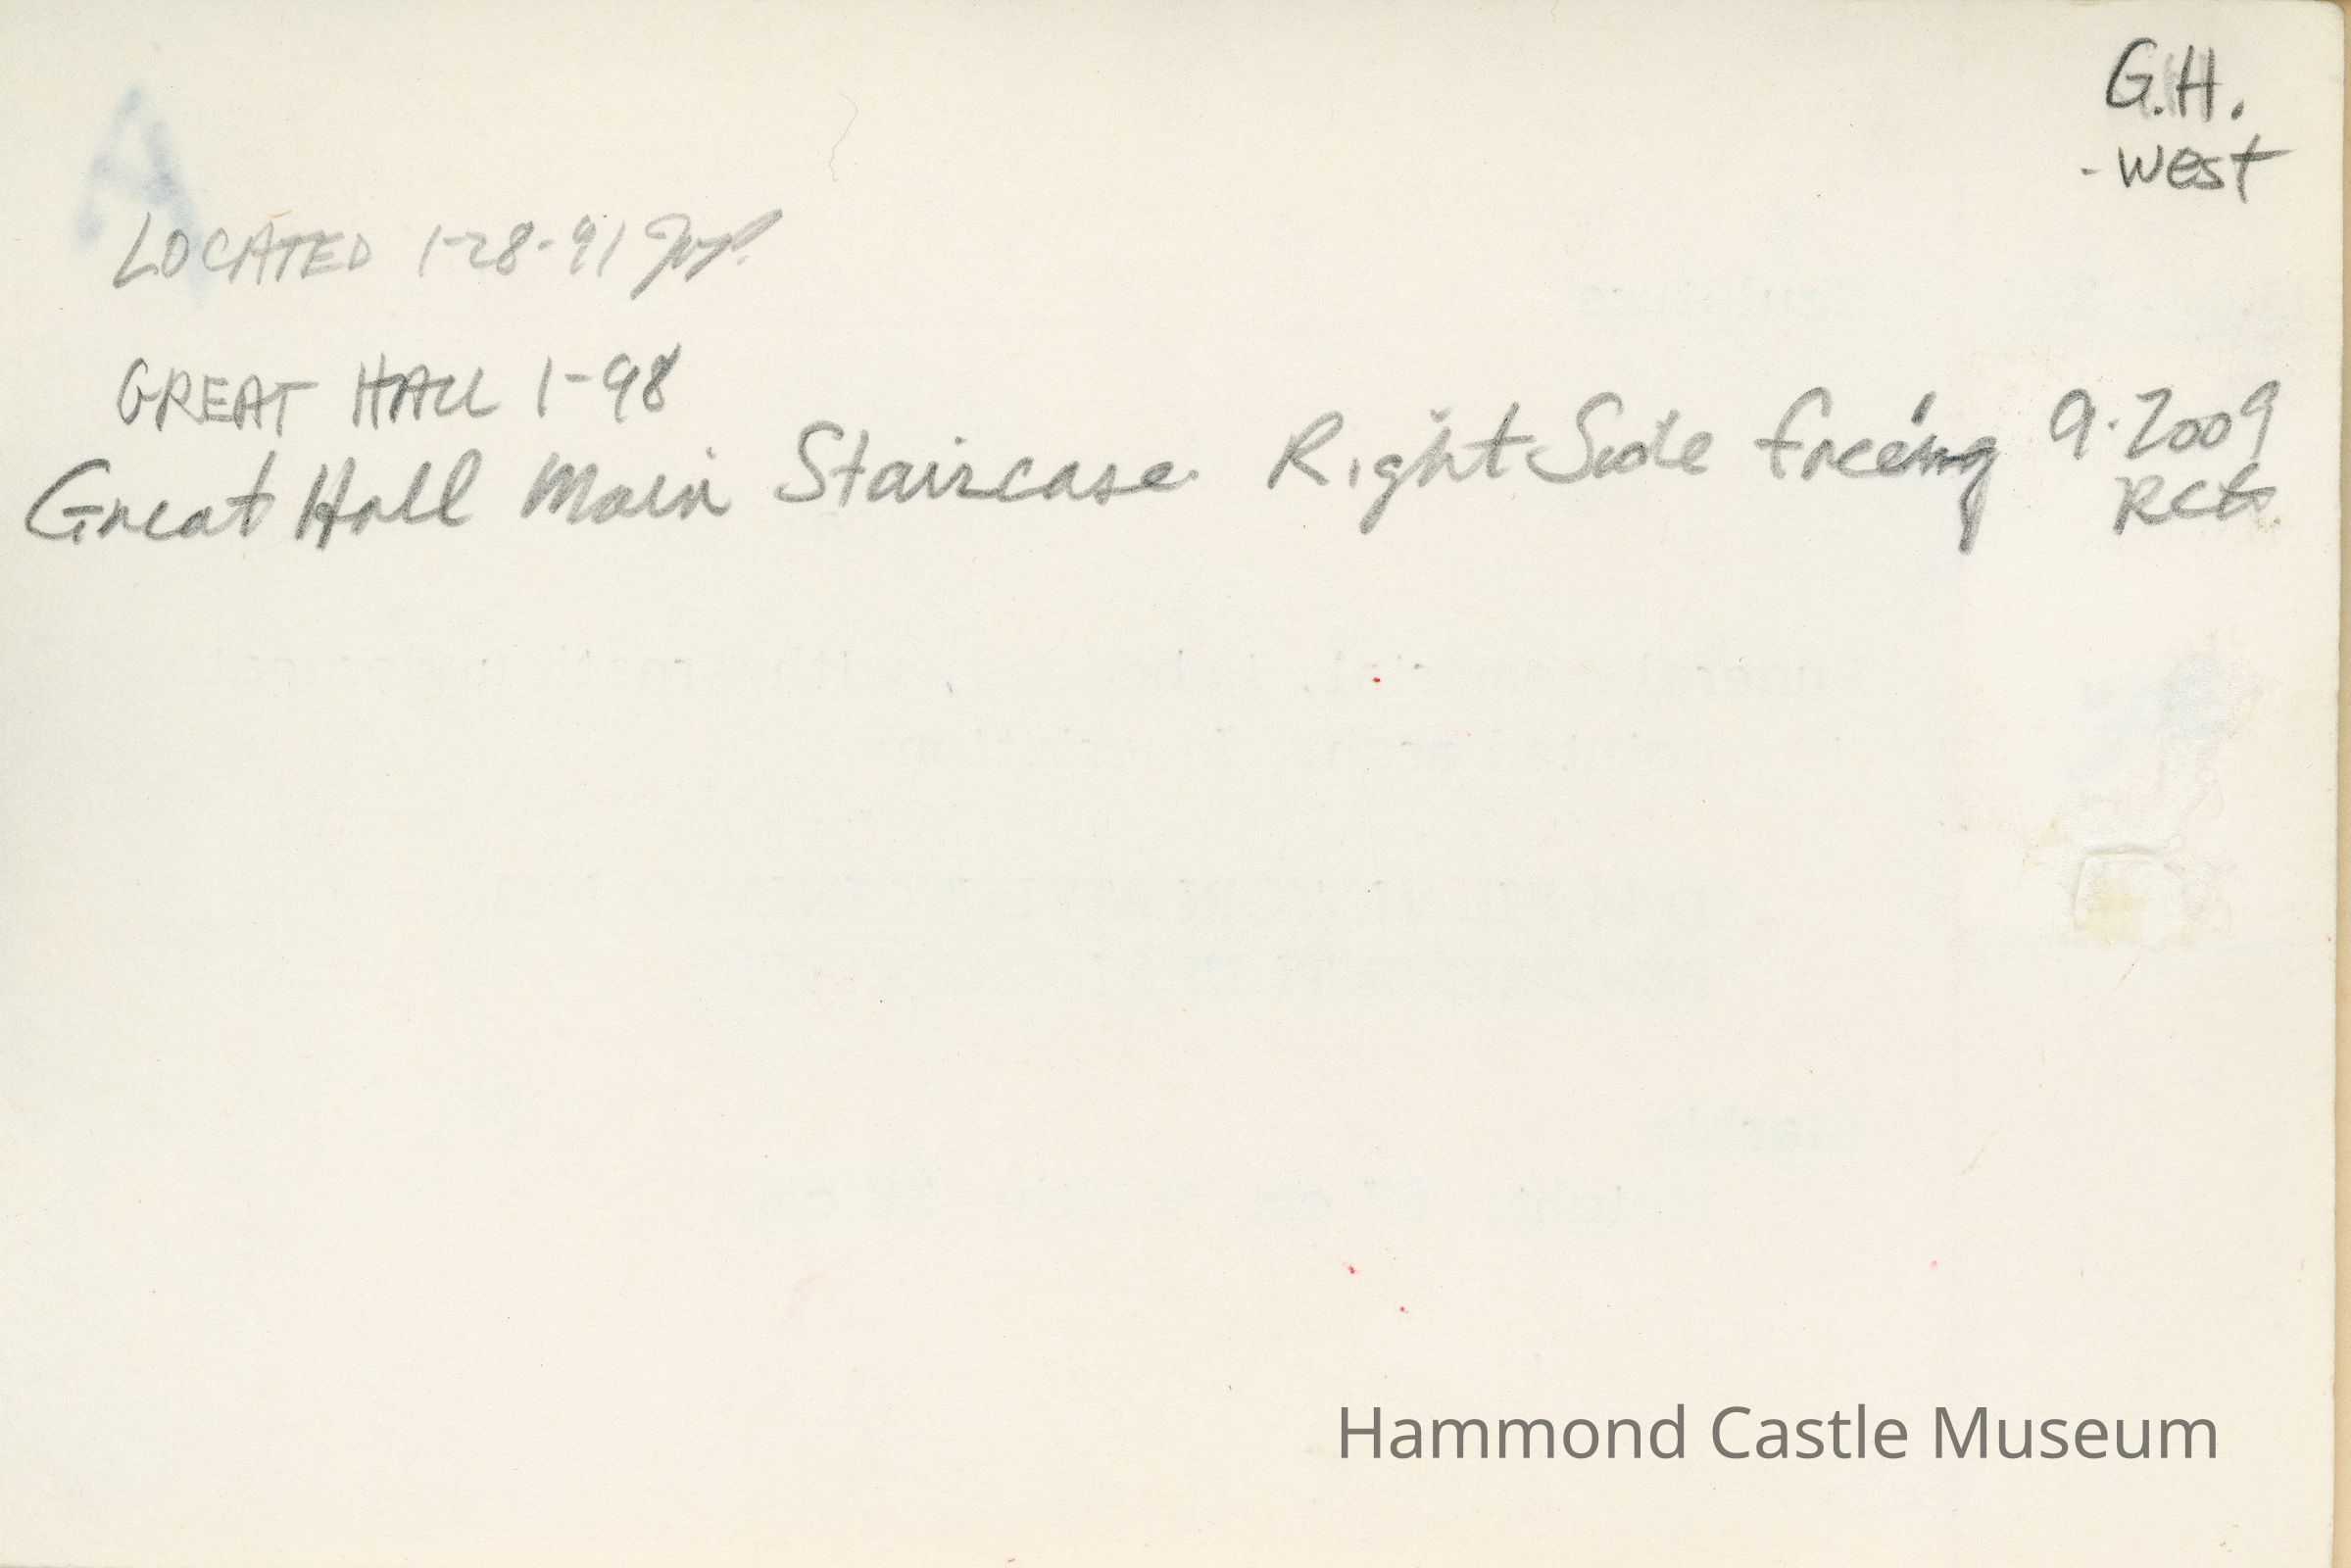 G.H.
- West
A
LOCATED 1-28-91
GREAT HALL 1-98
Great Hall Main Staircase Right Side facing 9.2009
Hammond Castle Museum